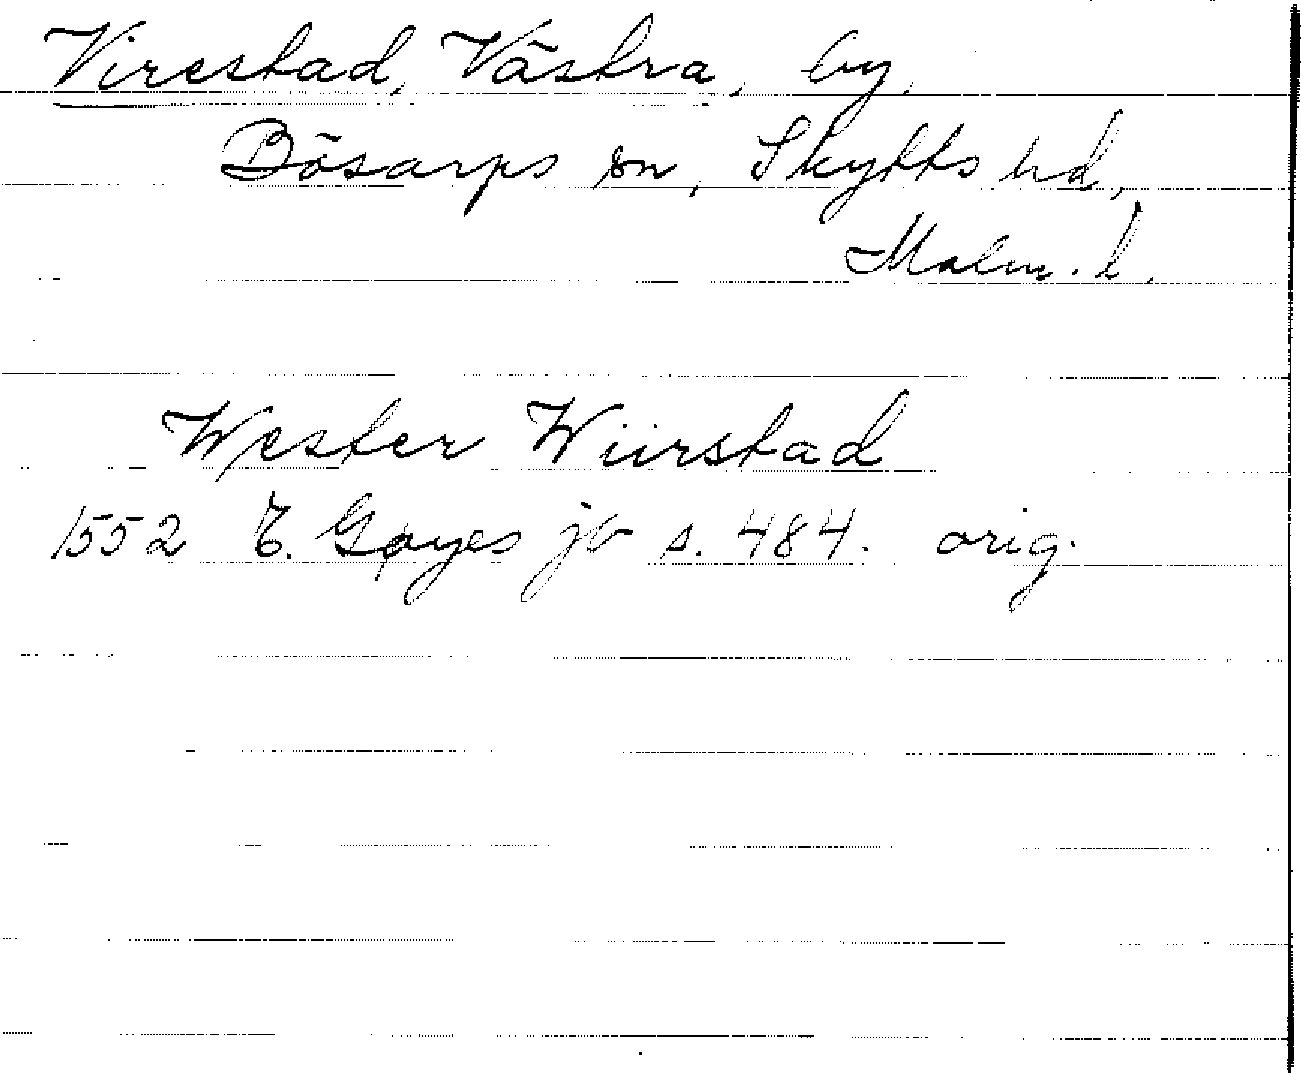 Virestad, Västra, by,
Bösarps sn, Skytts hd,
Malm. l.
Wester Wiirstad
1552 T. Gøyes jb s. 484. orig.